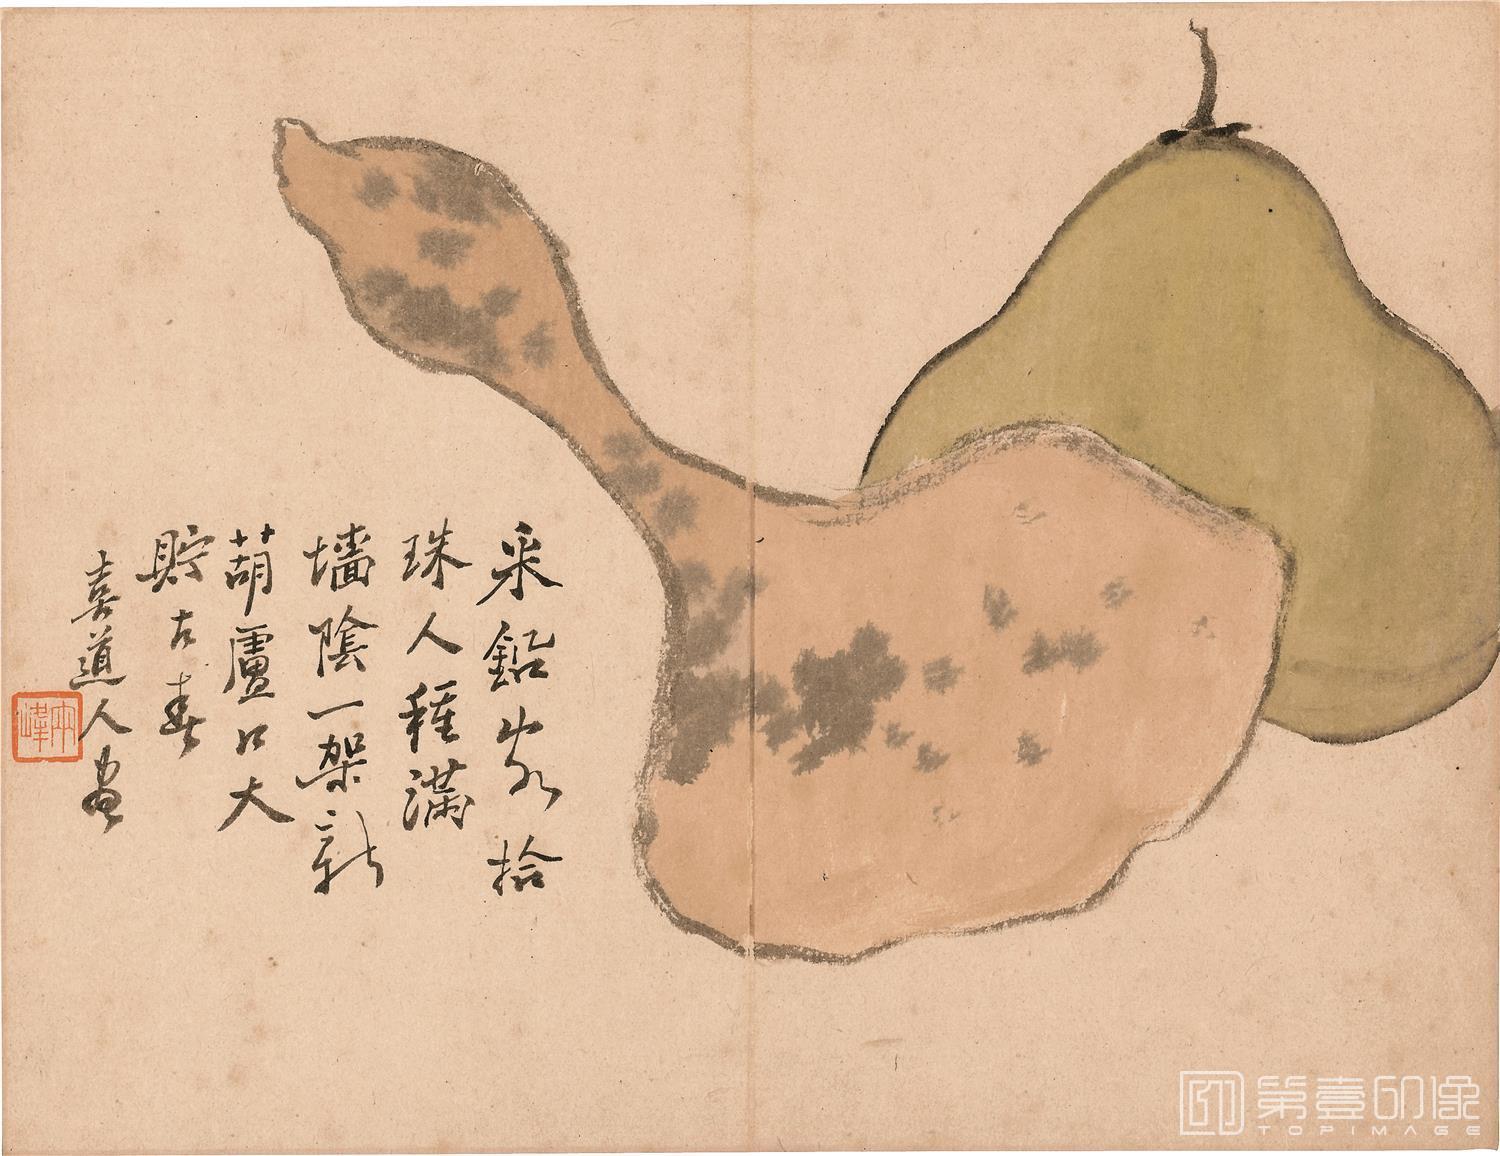 采鉛家拾
珠人種滿
墻陰一架新
葫蘆口大
貯古春
喜道人畫
兩峰
第壹印像
TOPIMAGE